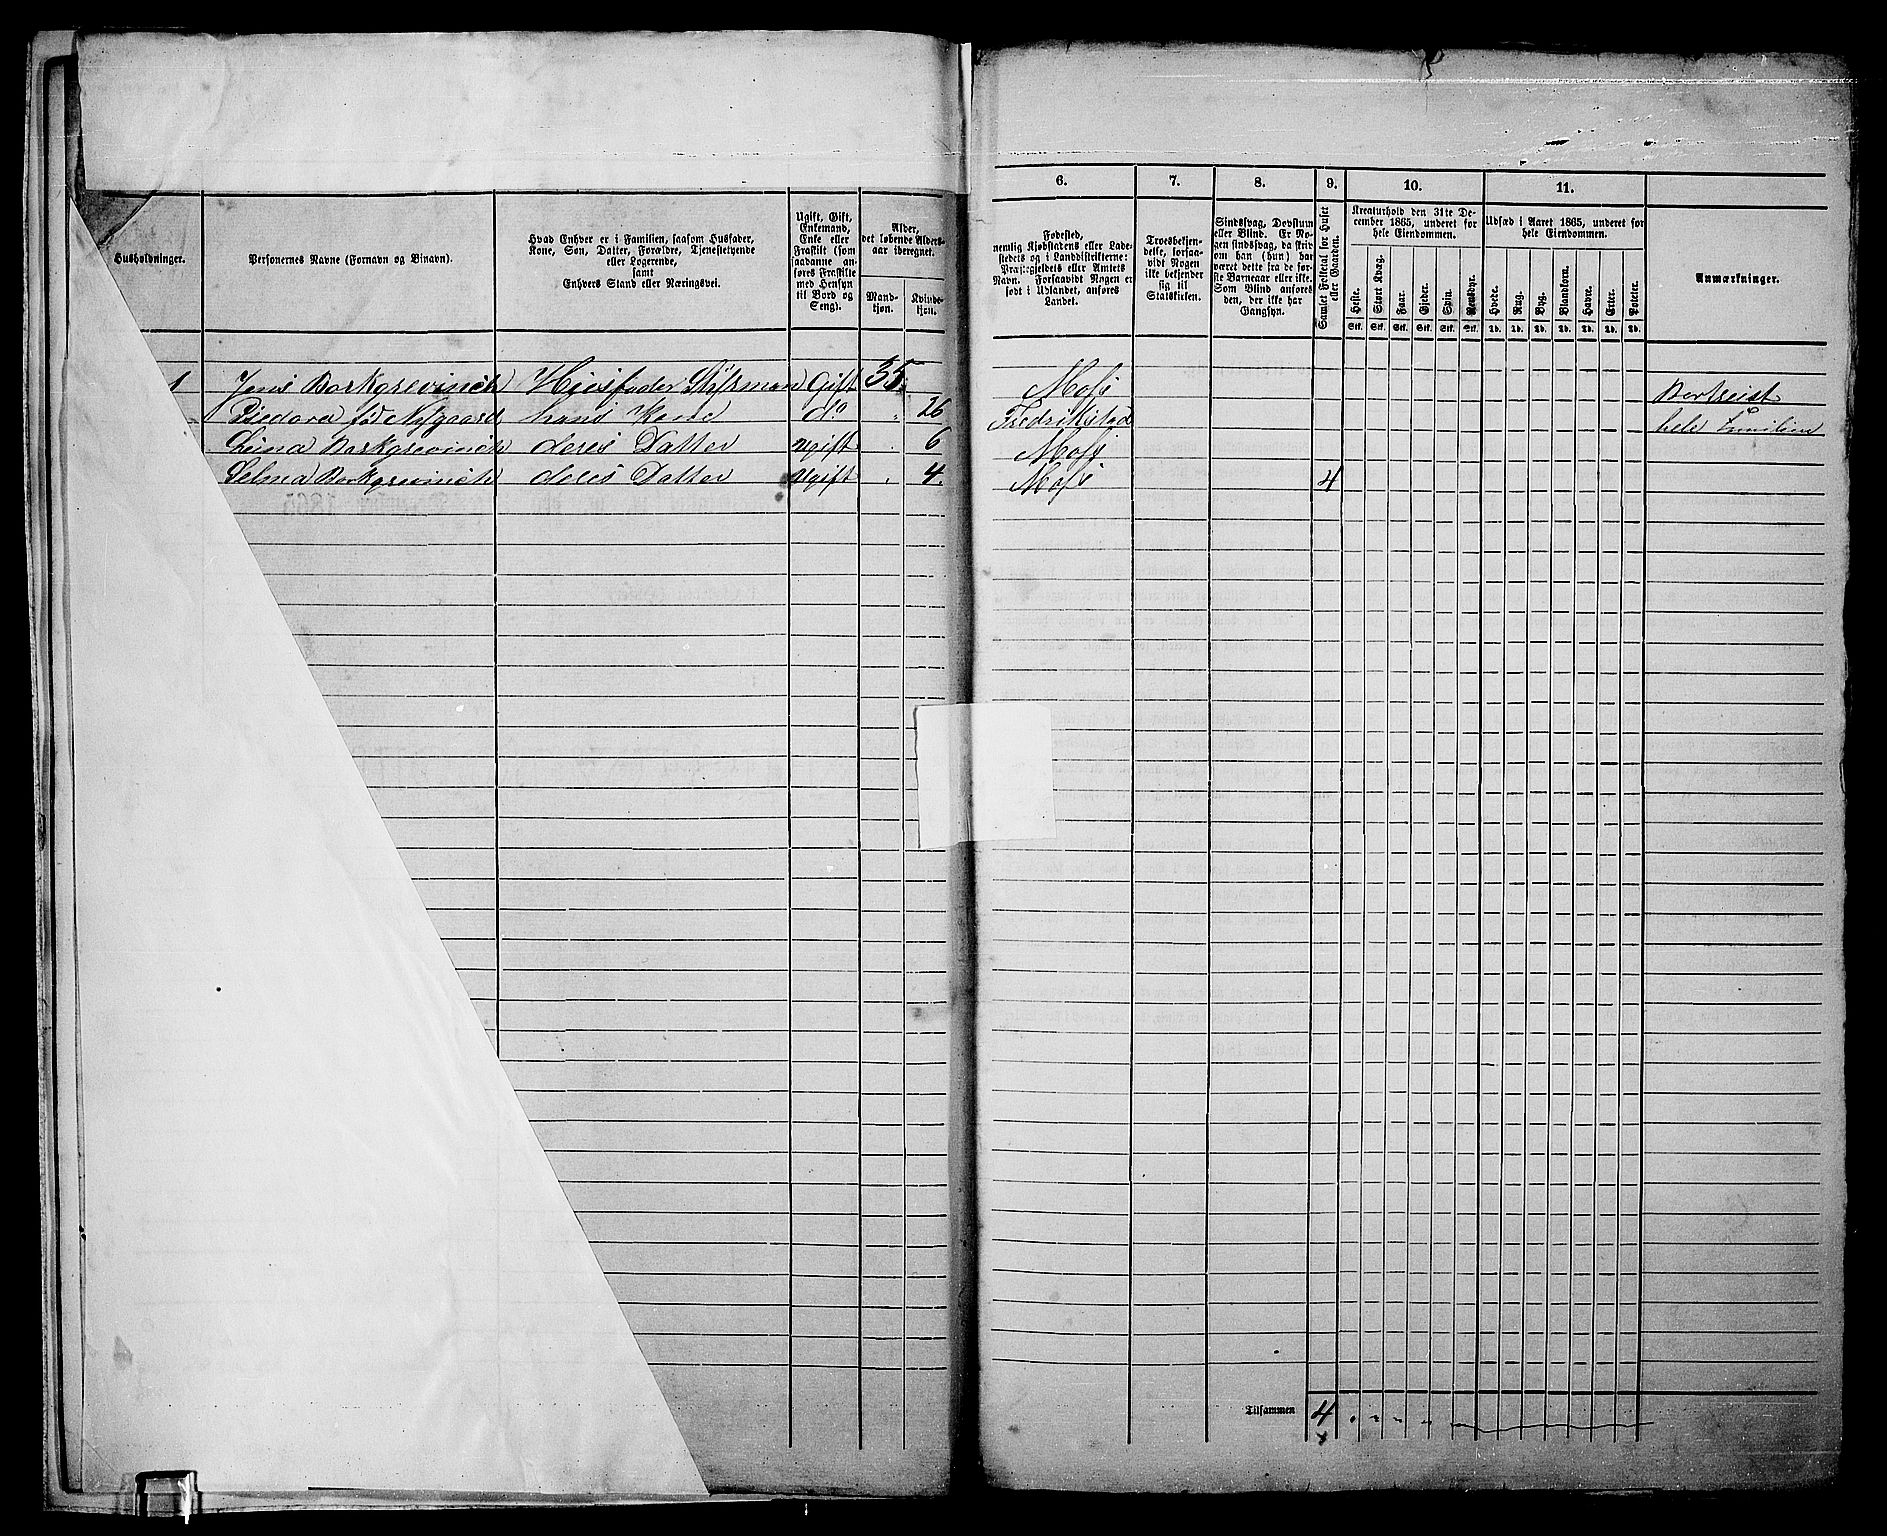 6. 7. 8. 9. 10. 11.
Husholdninger.
Personernes Navne (Fornavn og Binavn).
Hvad Enhver er i Familien, saasom Husfader,
Kone, Søn, Datter, Forældre, Tjenestetyende
eller Logerende,
samt
Enhvers Stand eller Næringsvei.
Ugift, Gift,
Enkemand,
Enke eller
Fraskilt (som
saadanne an-
føres Fraskilte
med Hensyn
til Bord og
Seng).
Alder,
det løbende Alders-
aar iberegnet.
Mand-
kjøn.
Kvinde-
kjøn.
Fødested,
nemlig Kjøbstadens eller Lade-
stedets og i Landdistrikterne:
Præstegjeldets eller Amtets
Navn. Forsaavidt Nogen er
født i Udlandet, anføres
Landet.
Troesbekjen-
delse, forsaa-
vidt Nogen
ikke bekjender
sig til
Statskirken.
Sindssvag, Døvstum
eller Blind. Er No-
gen sindssvag, da skriv
om han (hun) har
været dette fra de før-
ste Barneaar eller ikke.
Som Blind anføres
den, der ikke har
Gangsyn.
Samlet Folketal for Huset
eller Gaarden.
Kreaturhold den 31te De-
cember 1865, underet for
hele Eiendommen.
Heste. Stort Kvæg. Faar. Gjeder. Svin. Rensdyr.
Stk. Stk. Stk. Stk. Stk. Stk.
Udsæd i Aaret 1865, underet for
hele Eiendommen.
Hvede. Rug. Byg. Blandkorn. Havre. Erter. Poteter.
Td. Td. Td. Td. Td. Td. Td.
Anmærkninger.
1 Jens Borkgrevinch Huusfader Styrman Gift 35 Moss Bortreist
fød Nygaard hans Kone do 26 Fredrikstad hele Familien
Borkgrevinch deres Datter Ugift 6 Moss
Selma Borkgrevinch deres Datter Ugift 4 Moss 4
Tilsammen 4